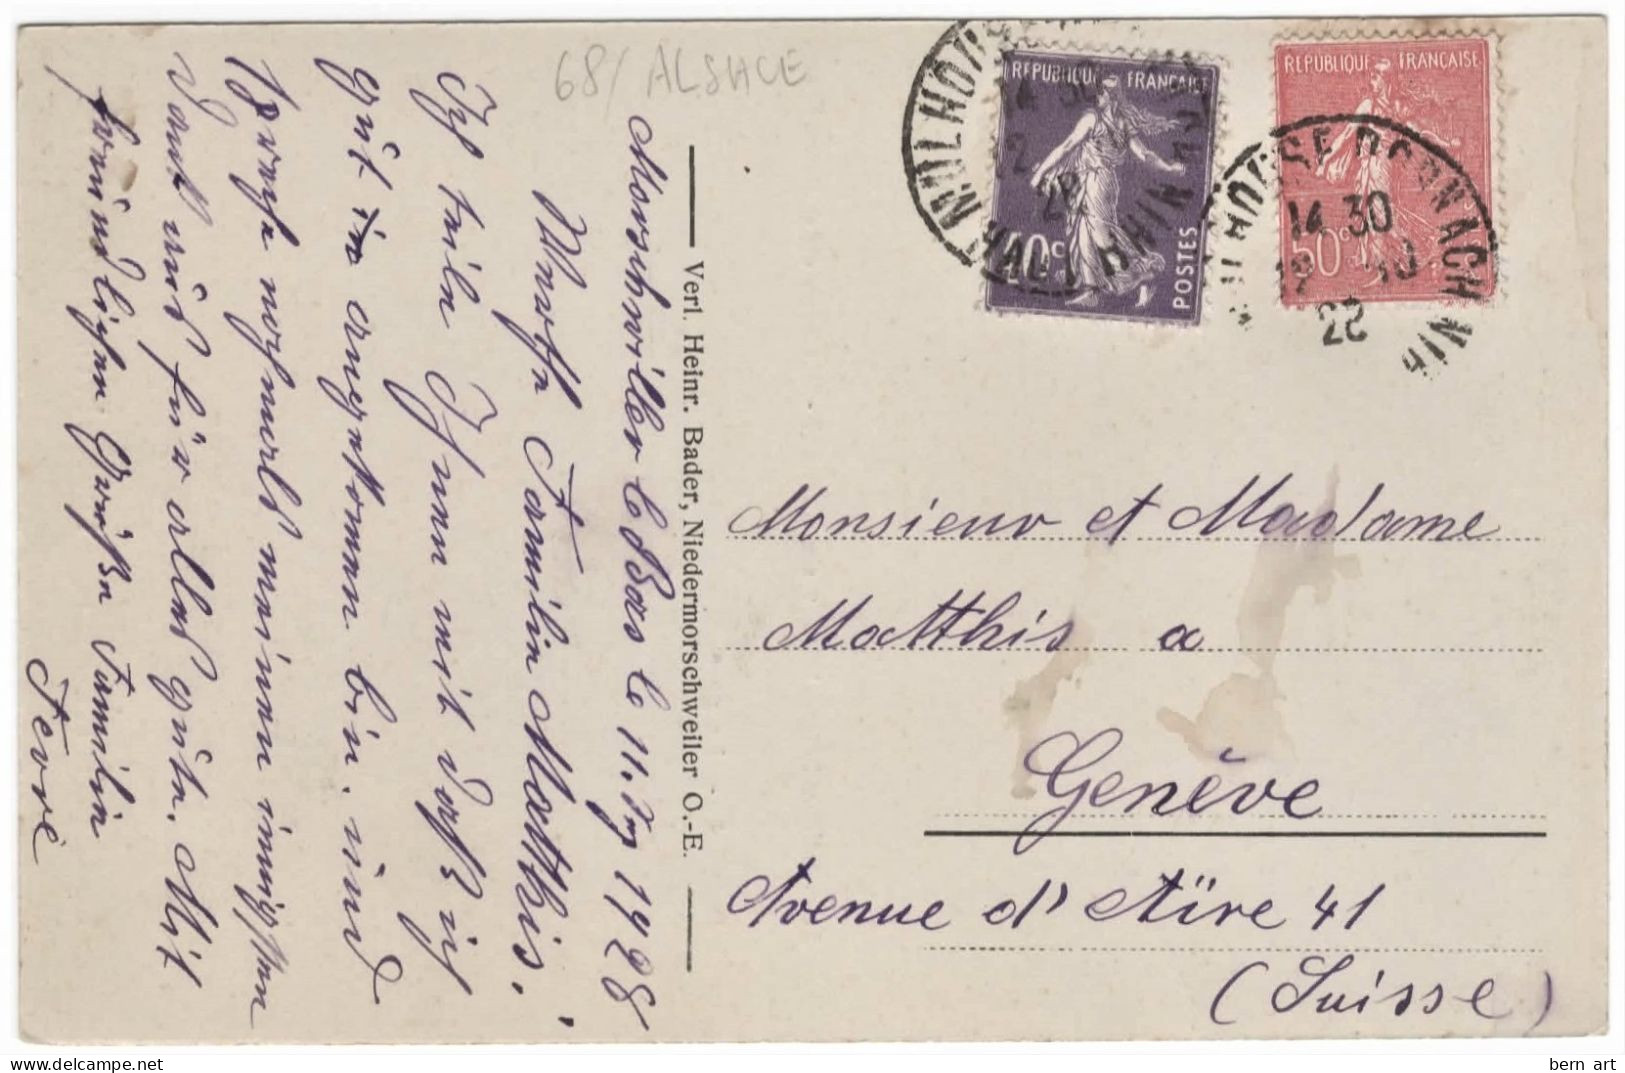 68/ ALSACE
Morschwiller le Bas le 11. 1928
Werthe Familie Matthis.
Ich teile Ihnen mit daß ich
gut in angekommen bin. und
spreche nochmals meinen innigsten
Dank aus für alles gute. Mit
freundlichen Grüßen Familie
Fevre
Verl. Heinr. Bader, Niedermorschweiler O.-E.
REPUBLIQUE FRANÇAISE
40c
POSTES
MULHOUSE
HAUT RHIN
14 30
28
REPUBLIQUE FRANÇAISE
50c
MULHOUSE DORNACH
14 30
Monsieur et Madame
Matthis a
Genêve
Avenue d' Aïre 41
(Suisse)
bern art